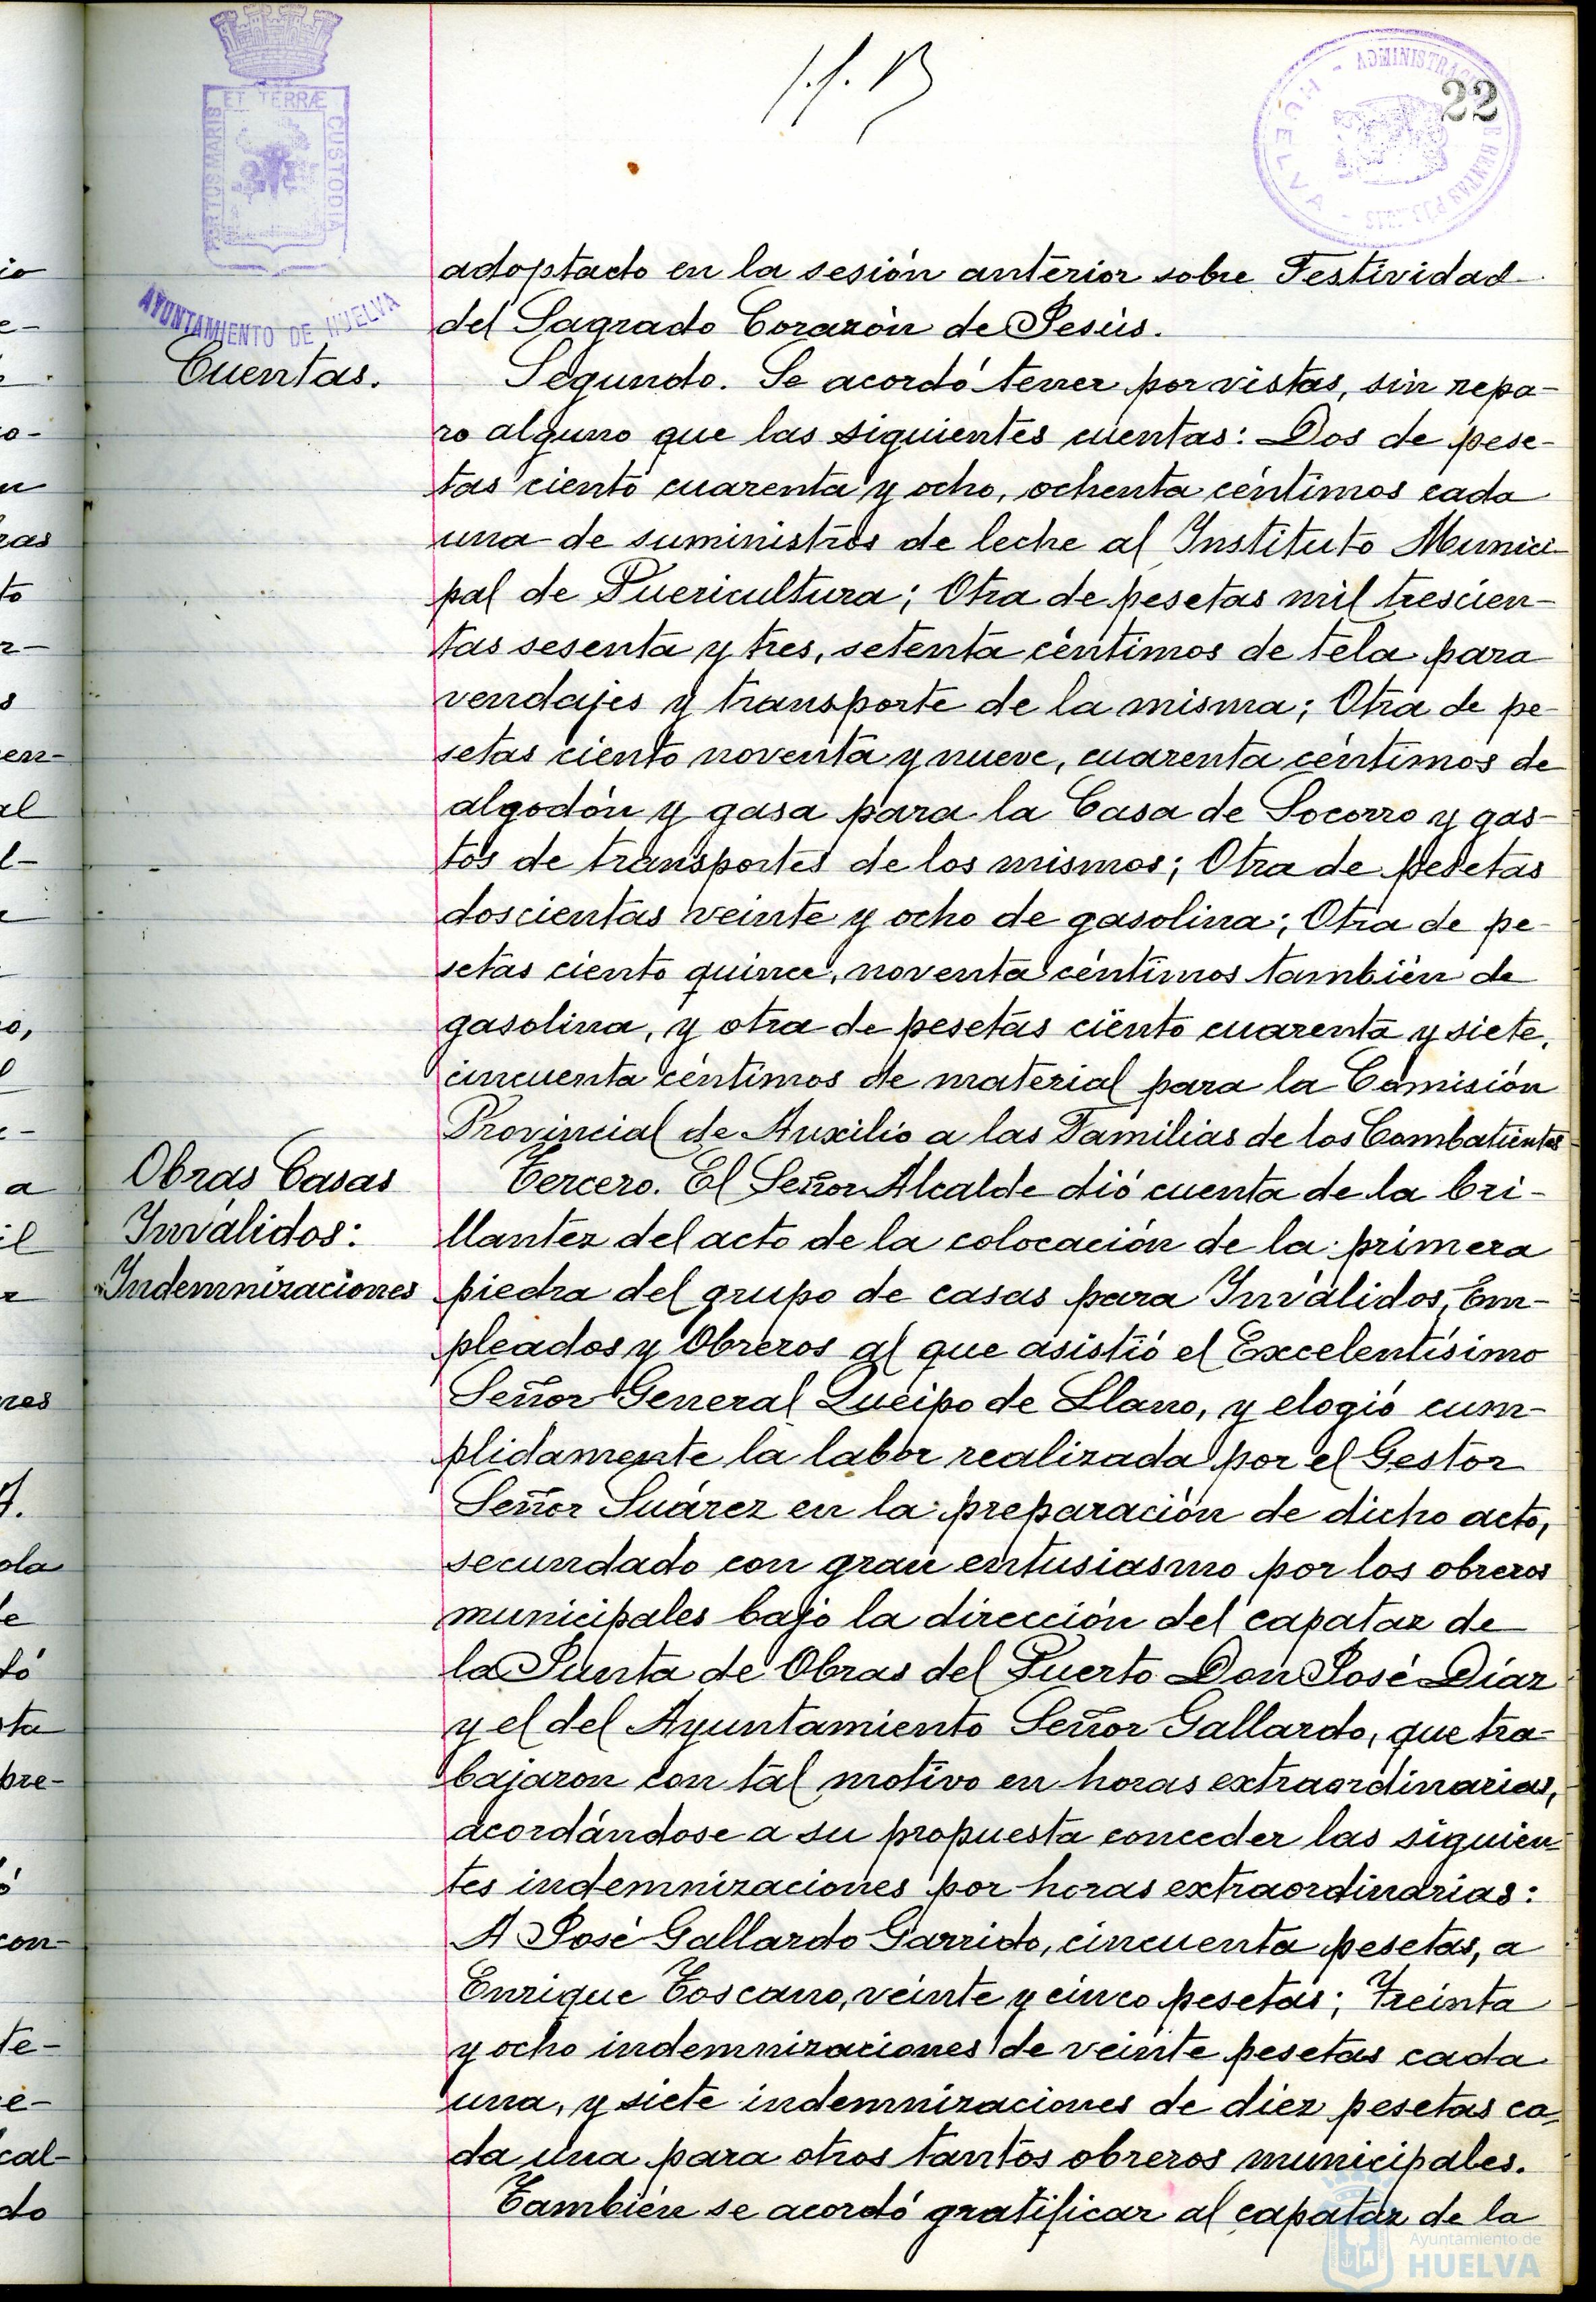 22
PORTUS MARIS
ET TERRÆ
CUSTODIA
AYUNTAMIENTO DE HUELVA
HUELVA
adoptado en la sesión anterior sobre Festividad
del Sagrado Corazón de Jesús.
Cuentas.
Segundo. Se acordó tener por vistas, sin repa-
ro alguno que las siguientes cuentas: Dos de pese-
tas ciento cuarenta y ocho, ochenta céntimos cada
una de suministros de leche al Instituto Munici-
pal de Puericultura; Otra de pesetas mil trescien-
tas sesenta y tres, setenta céntimos de tela para
vendajes y transporte de la misma; Otra de pe-
setas ciento noventa y nueve, cuarenta céntimos de
algodón y gasa para la Casa de Socorro y gas-
tos de transportes de los mismos; Otra de pesetas
doscientas veinte y ocho de gasolina; Otra de pe-
setas ciento quince, noventa céntimos también de
gasolina, y otra de pesetas ciento cuarenta y siete,
cincuenta céntimos de material para la Comisión
Provincial de Auxilio a las Familias de los Combatientes
Obras Casas
Inválidos:
Indemnizaciones
Tercero. El Señor Alcalde dió cuenta de la bri-
llantez del acto de la colocación de la primera
piedra del grupo de casas para Inválidos, Em-
pleados y Obreros al que asistió el Excelentísimo
Señor General Queipo de Llano, y elogió cum-
plidamente la labor realizada por el Gestor
Señor Suárez en la preparación de dicho acto,
secundado con gran entusiasmo por los obreros
municipales bajo la dirección del capataz de
la Junta de Obras del Puerto Don José Díaz
y el del Ayuntamiento Señor Gallardo, que tra-
bajaron con tal motivo en horas extraordinarias,
acordándose a su propuesta conceder las siguien-
tes indemnizaciones por horas extraordinarias:
A José Gallardo Garrido, cincuenta pesetas, a
Enrique Toscano, veinte y cinco pesetas; Treinta
y ocho indemnizaciones de veinte pesetas cada
una, y siete indemnizaciones de diez pesetas ca-
da una para otros tantos obreros municipales.
También se acordó gratificar al capataz de la
Ayuntamiento de
HUELVA